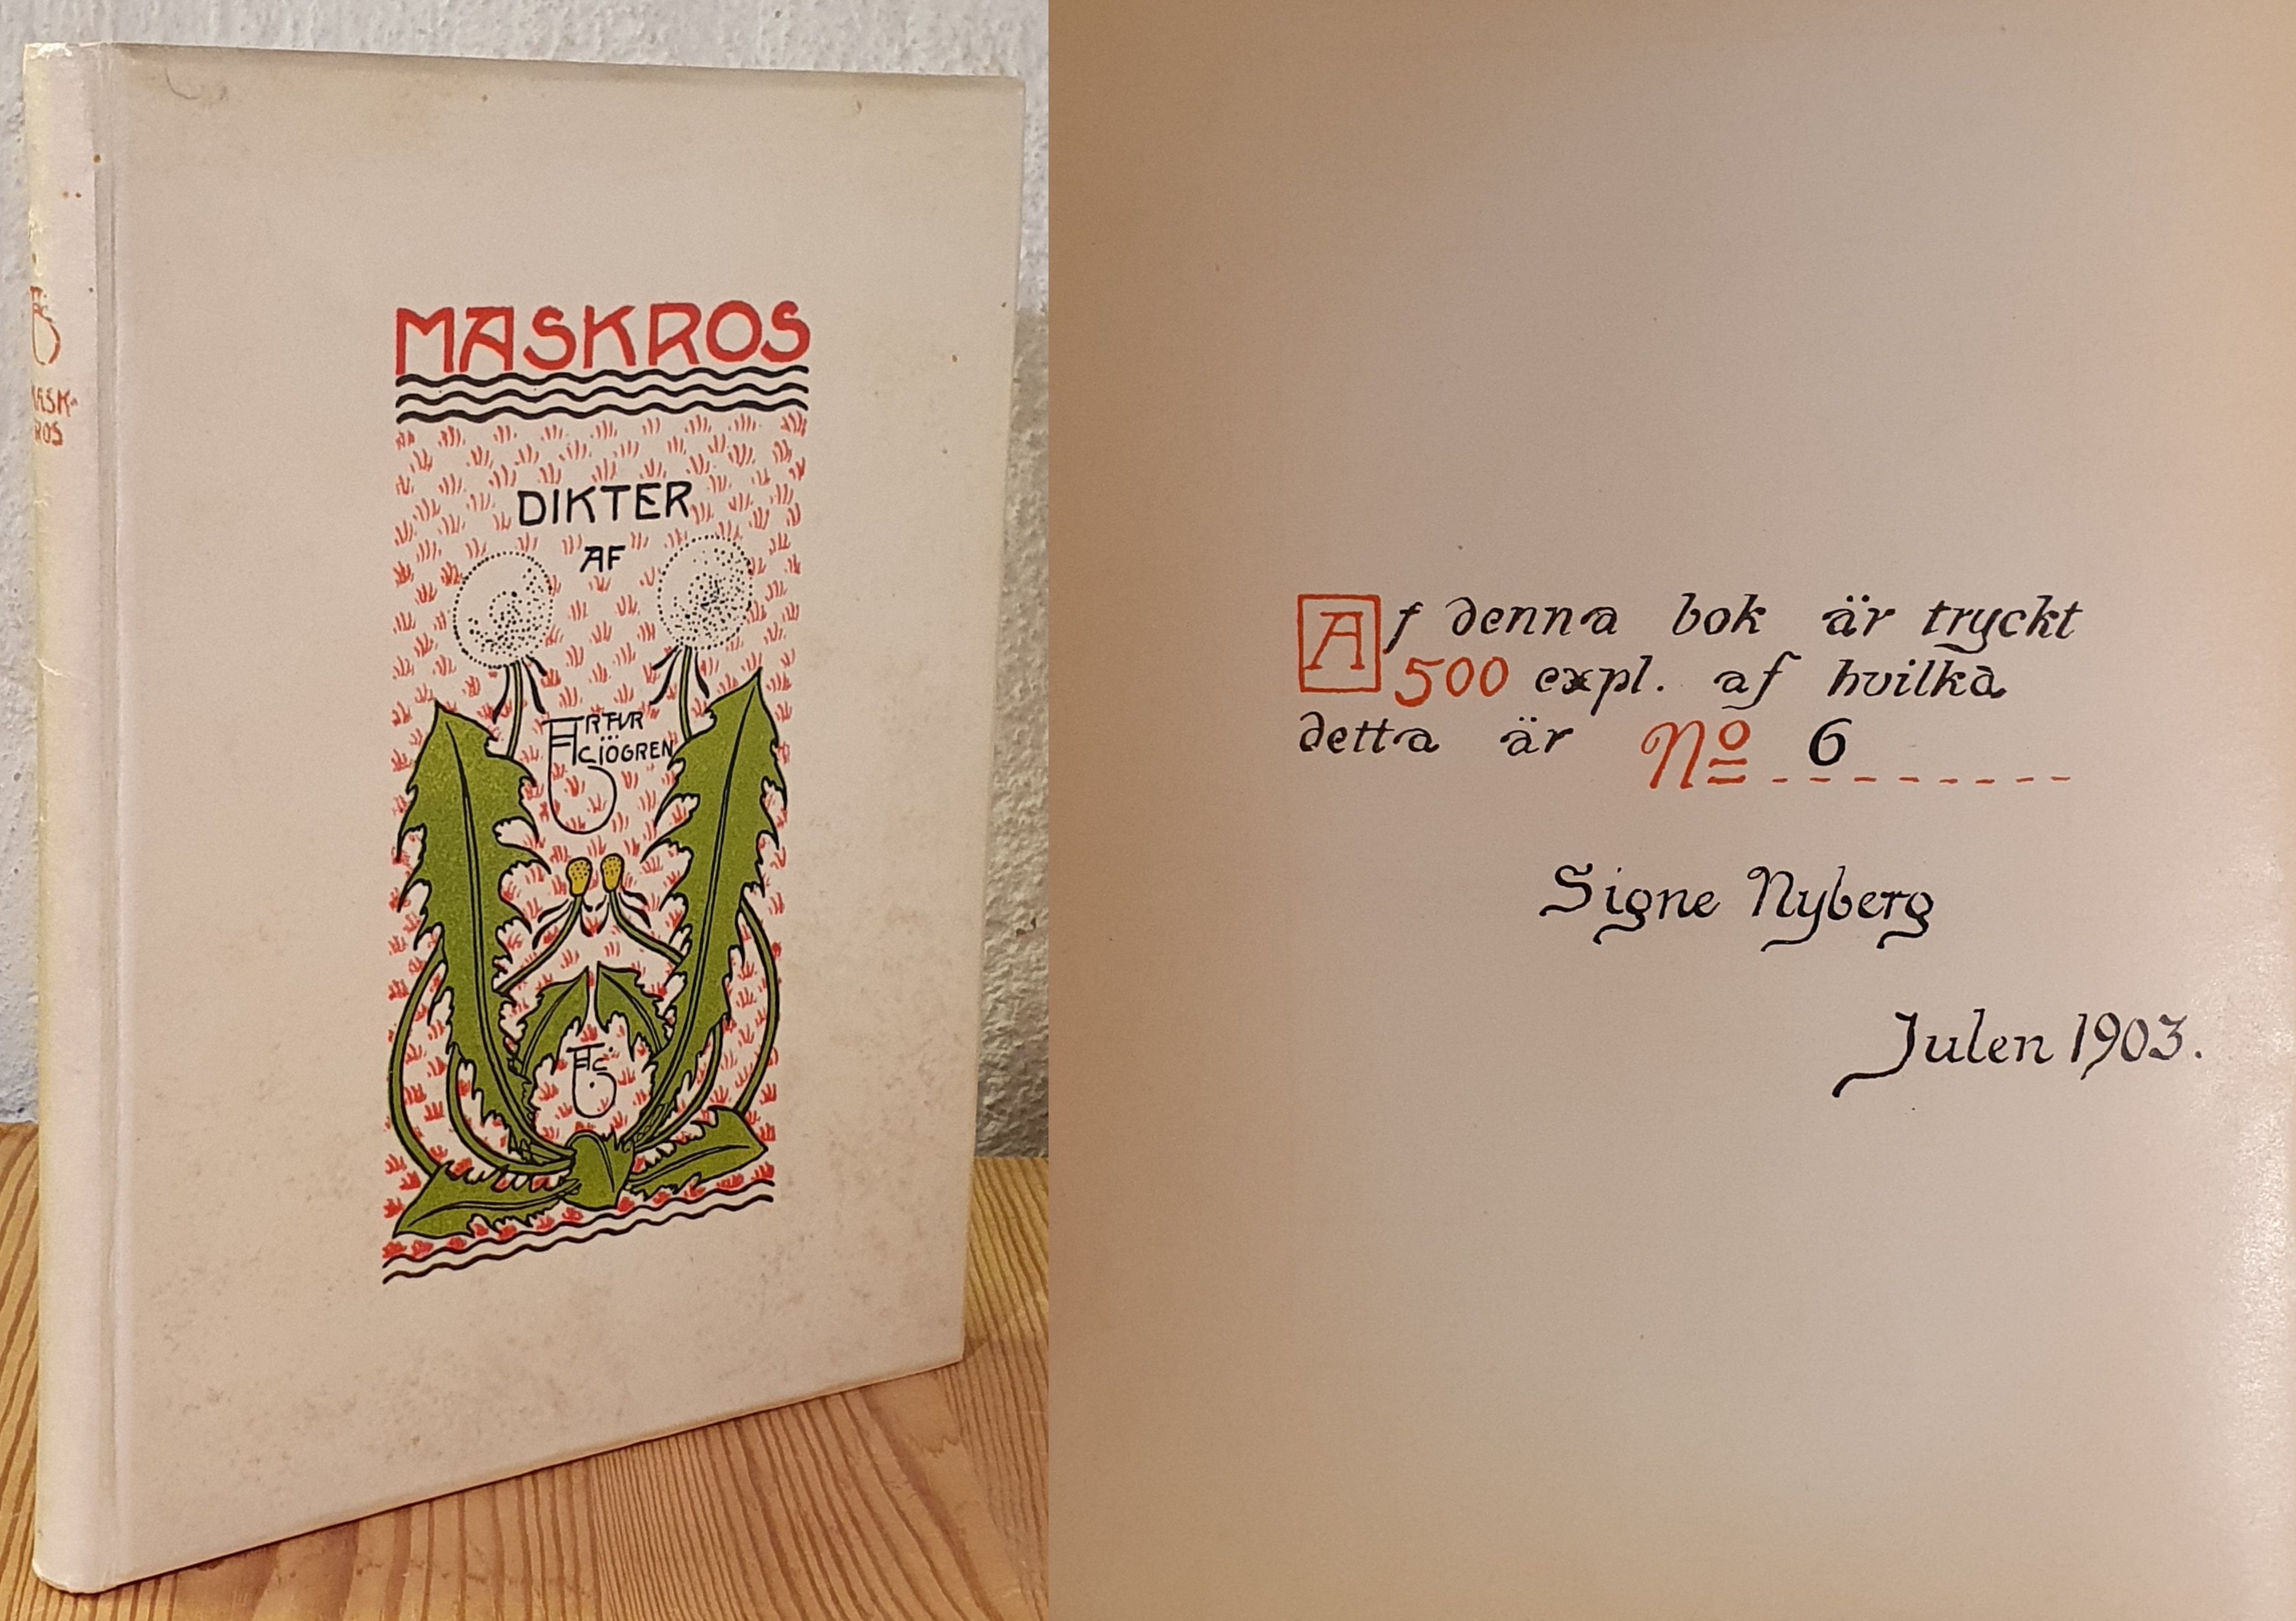 MASK-
ROS
MASKROS
DIKTER
AF
ARTUR
SJÖGREN
Af denna bok är tryckt
500 expl. af hvilka
detta är No 6
Signe Nyberg
Julen 1903.